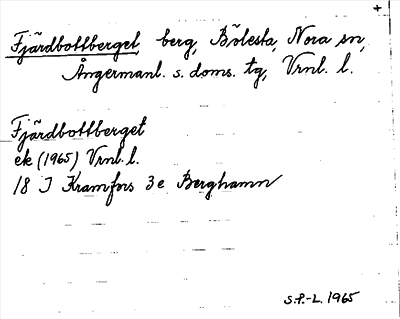 +
Fjärdbottberget, berg, Bölesta, Nora sn,
Ångermanl. s. doms. tg, Vrnl. l.
Fjärdbottberget
ek (1965) Vrnl. l.
18 I Kramfors 3e Berghamn
S.P.-L. 1965